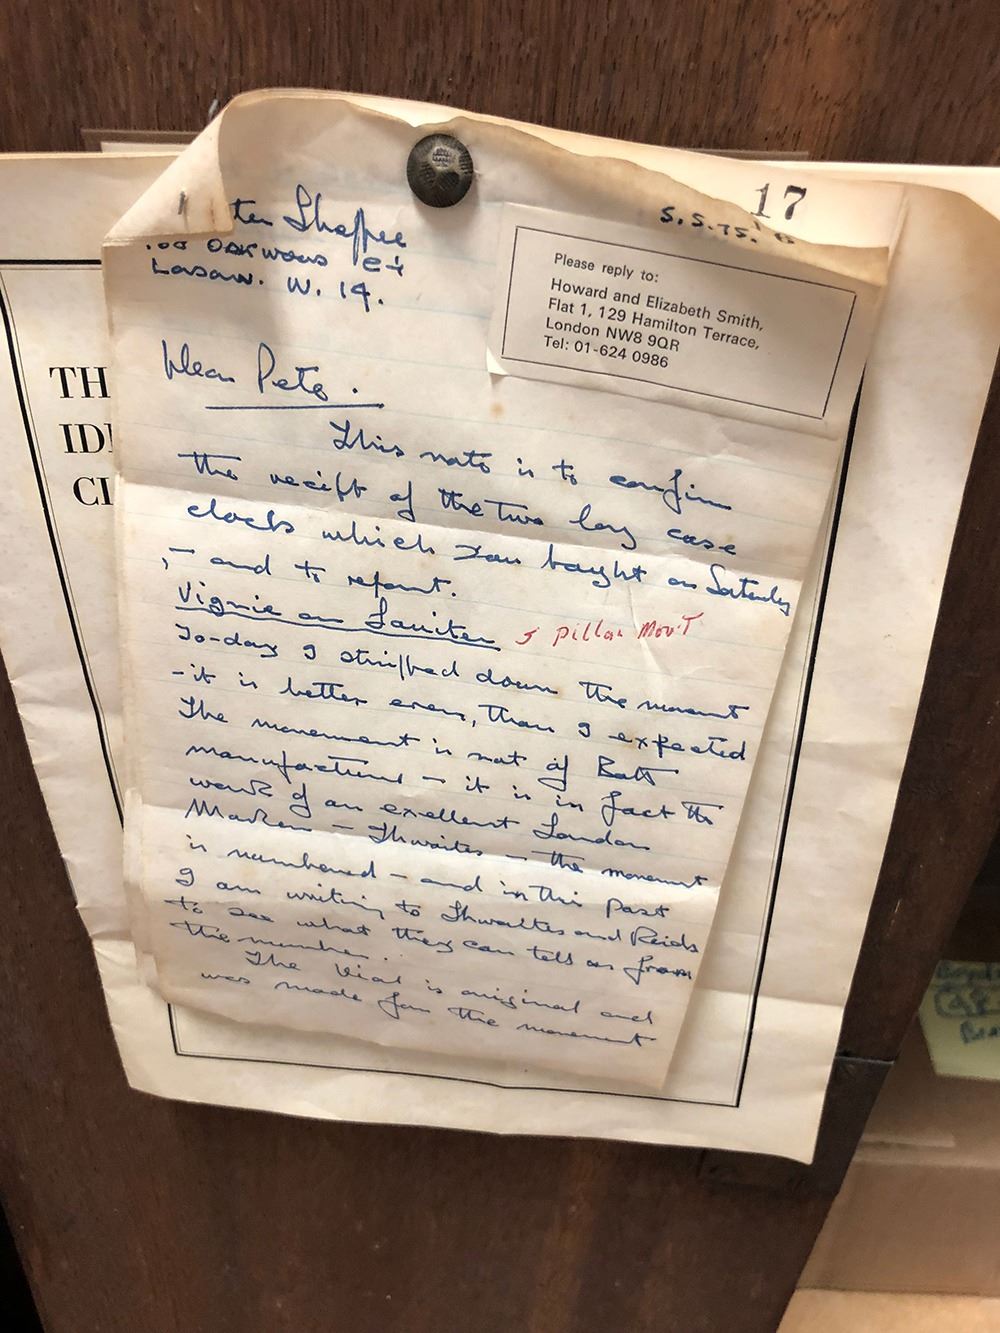 17
5.5.75.
Please reply to:
Howard and Elizabeth Smith,
Flat 1, 129 Hamilton Terrace,
London NW8 9QR
Tel: 01-624 0986
London. W. 14.
Dear Pete.
This note is to confirm
the receipt of the two long case
clocks which you bought on Saturday
- and to report.
5 pillar Mov'T
To-day I stripped down the movement
- it is better even, than I expected
The movement is not of Bath
manufacture - it is in fact the
work of an excellent London
Maker - Thwaites - the movement
is numbered - and in this post
I am writing to Thwaites and Reids
to see what they can tell us from
the number.
The dial is original and
was made for the movement
TH
ID
CL